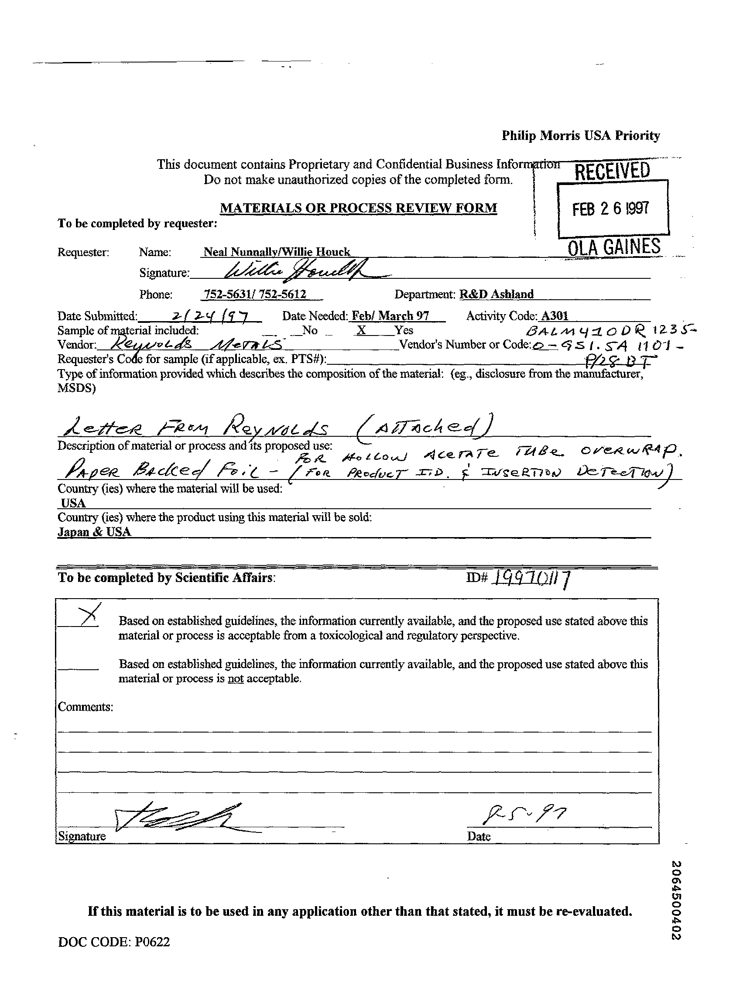 Philip Morris USA Priority
This document contains Proprietary and Confidential Business Information
Do not make unauthorized copies of the completed form.
RECEIVED
FEB 26 1997
OLA GAINES
MATERIALS OR PROCESS REVIEW FORM
To be completed by requester:
Requester: Name: Neal Nunnally/Willie Houck
Signature: Willie Houck
Phone: 752-5631/ 752-5612 Department: R&D Ashland
Date Submitted: 2/24/97 Date Needed: Feb/ March 97 Activity Code: A301
Sample of material included: No X Yes BALMY10DR1235-
Vendor: Reynolds Metals Vendor's Number or Code: 0-GS1.5A 1101-
Requester's Code for sample (if applicable, ex. PTS#): P/28 BT
Type of information provided which describes the composition of the material: (eg., disclosure from the manufacturer,
MSDS)
Letter From Reynolds (Attached)
Description of material or process and its proposed use: FOR HOLLOW ACETATE TUBE OVERWRAP.
PAPER Backed Foil - (FOR PRODUCT I.D. & INSERTION DETECTION)
Country (ies) where the material will be used:
USA
Country (ies) where the product using this material will be sold:
Japan & USA
To be completed by Scientific Affairs: ID# 19970117
X Based on established guidelines, the information currently available, and the proposed use stated above this
material or process is acceptable from a toxicological and regulatory perspective.
Based on established guidelines, the information currently available, and the proposed use stated above this
material or process is not acceptable.
Comments:
Signature Date
2064500402
If this material is to be used in any application other than that stated, it must be re-evaluated.
DOC CODE: P0622